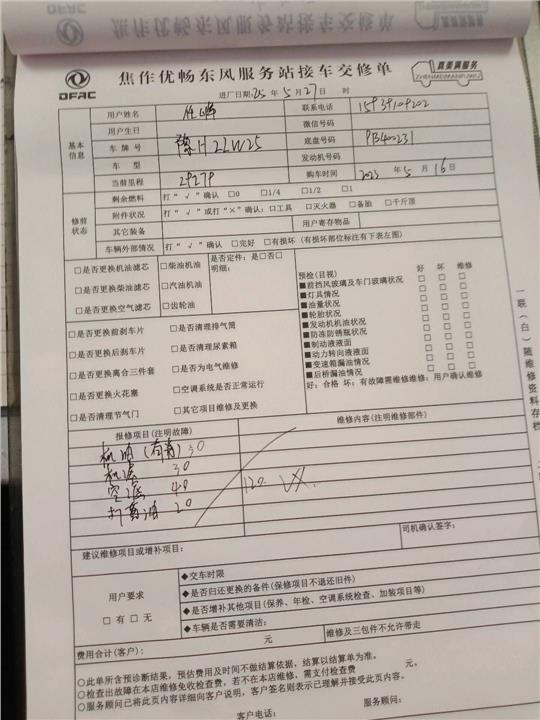 DFAC
焦作优畅东风服务站接车交修单
真美满服务
ZHENMEIMANFUWU
进厂日期:25年5月27日 时
基本信息
用户姓名
联系电话
用户生日
微信号码
车牌号 豫H2LW25
底盘号码 PB400231
车型
发动机号码
当前里程 29279
购车时间 2023年5月16日
修前状态
剩余燃料 打“√”确认 □0 □1/4 □1/2 □1
附件状况 打“√”或打“×”确认:□工具 □灭火器 □备胎 □千斤顶
其它装备
用户寄存物品
车辆外部情况 打“√”确认 □完好 □有损坏(有损坏部位标注有下表左图)
□是否更换机油滤芯 □柴油机油 是否定件:是□否□
□是否更换柴油滤芯 □汽油机油 明细:
□是否更换空气滤芯 □齿轮油
□是否更换前刹车片 □是否清理排气筒
□是否更换后刹车片 □是否清理尿素箱
□是否更换离合三件套 □是否为电气维修
□是否更换火花塞 □空调系统是否正常运行
□是否清理节气门 □其它项目维修及更换
预检(目视) 好 坏 维修
■前挡风玻璃及车门玻璃状况 □ □ □
■灯具情况 □ □ □
■油量状况 □ □ □
■轮胎状况 □ □ □
■发动机机油状况 □ □ □
■防冻防锈瓶状况 □ □ □
■制动液液面 □ □ □
■动力转向液液面 □ □ □
■变速箱漏油情况 □ □ □
■后桥漏油情况 □ □ □
好:合格 坏:有故障需维修维修:用户确认维修
报修项目(注明故障)
维修内容(注明维修部件)
机油(自南) 30
机滤 30
空滤 40
打黄油 20
120
司机确认签字:
建议维修项目或增补项目:
用户要求
□有 □无
◆交车时限
◆是否归还更换的备件(保修项目不退还旧件)
◆是否增补其他项目(保养、年检、空调系统检查、加装项目等)
◆车辆是否需要清洁:
费用合计(客户): 元
维修及三包件不允许带走
○此单所含预诊断结果,预估费用及时间不做结算依据,结算以结算单为准。
○检查出故障在本店维修免收检查费,若不在本店维修,需支付检查费 元。
○服务顾问已将此页内容详细向客户说明,客户签名则表示已理解并接受此页内容。
客户电话:
服务顾问:
一联(白)随维修资料存档